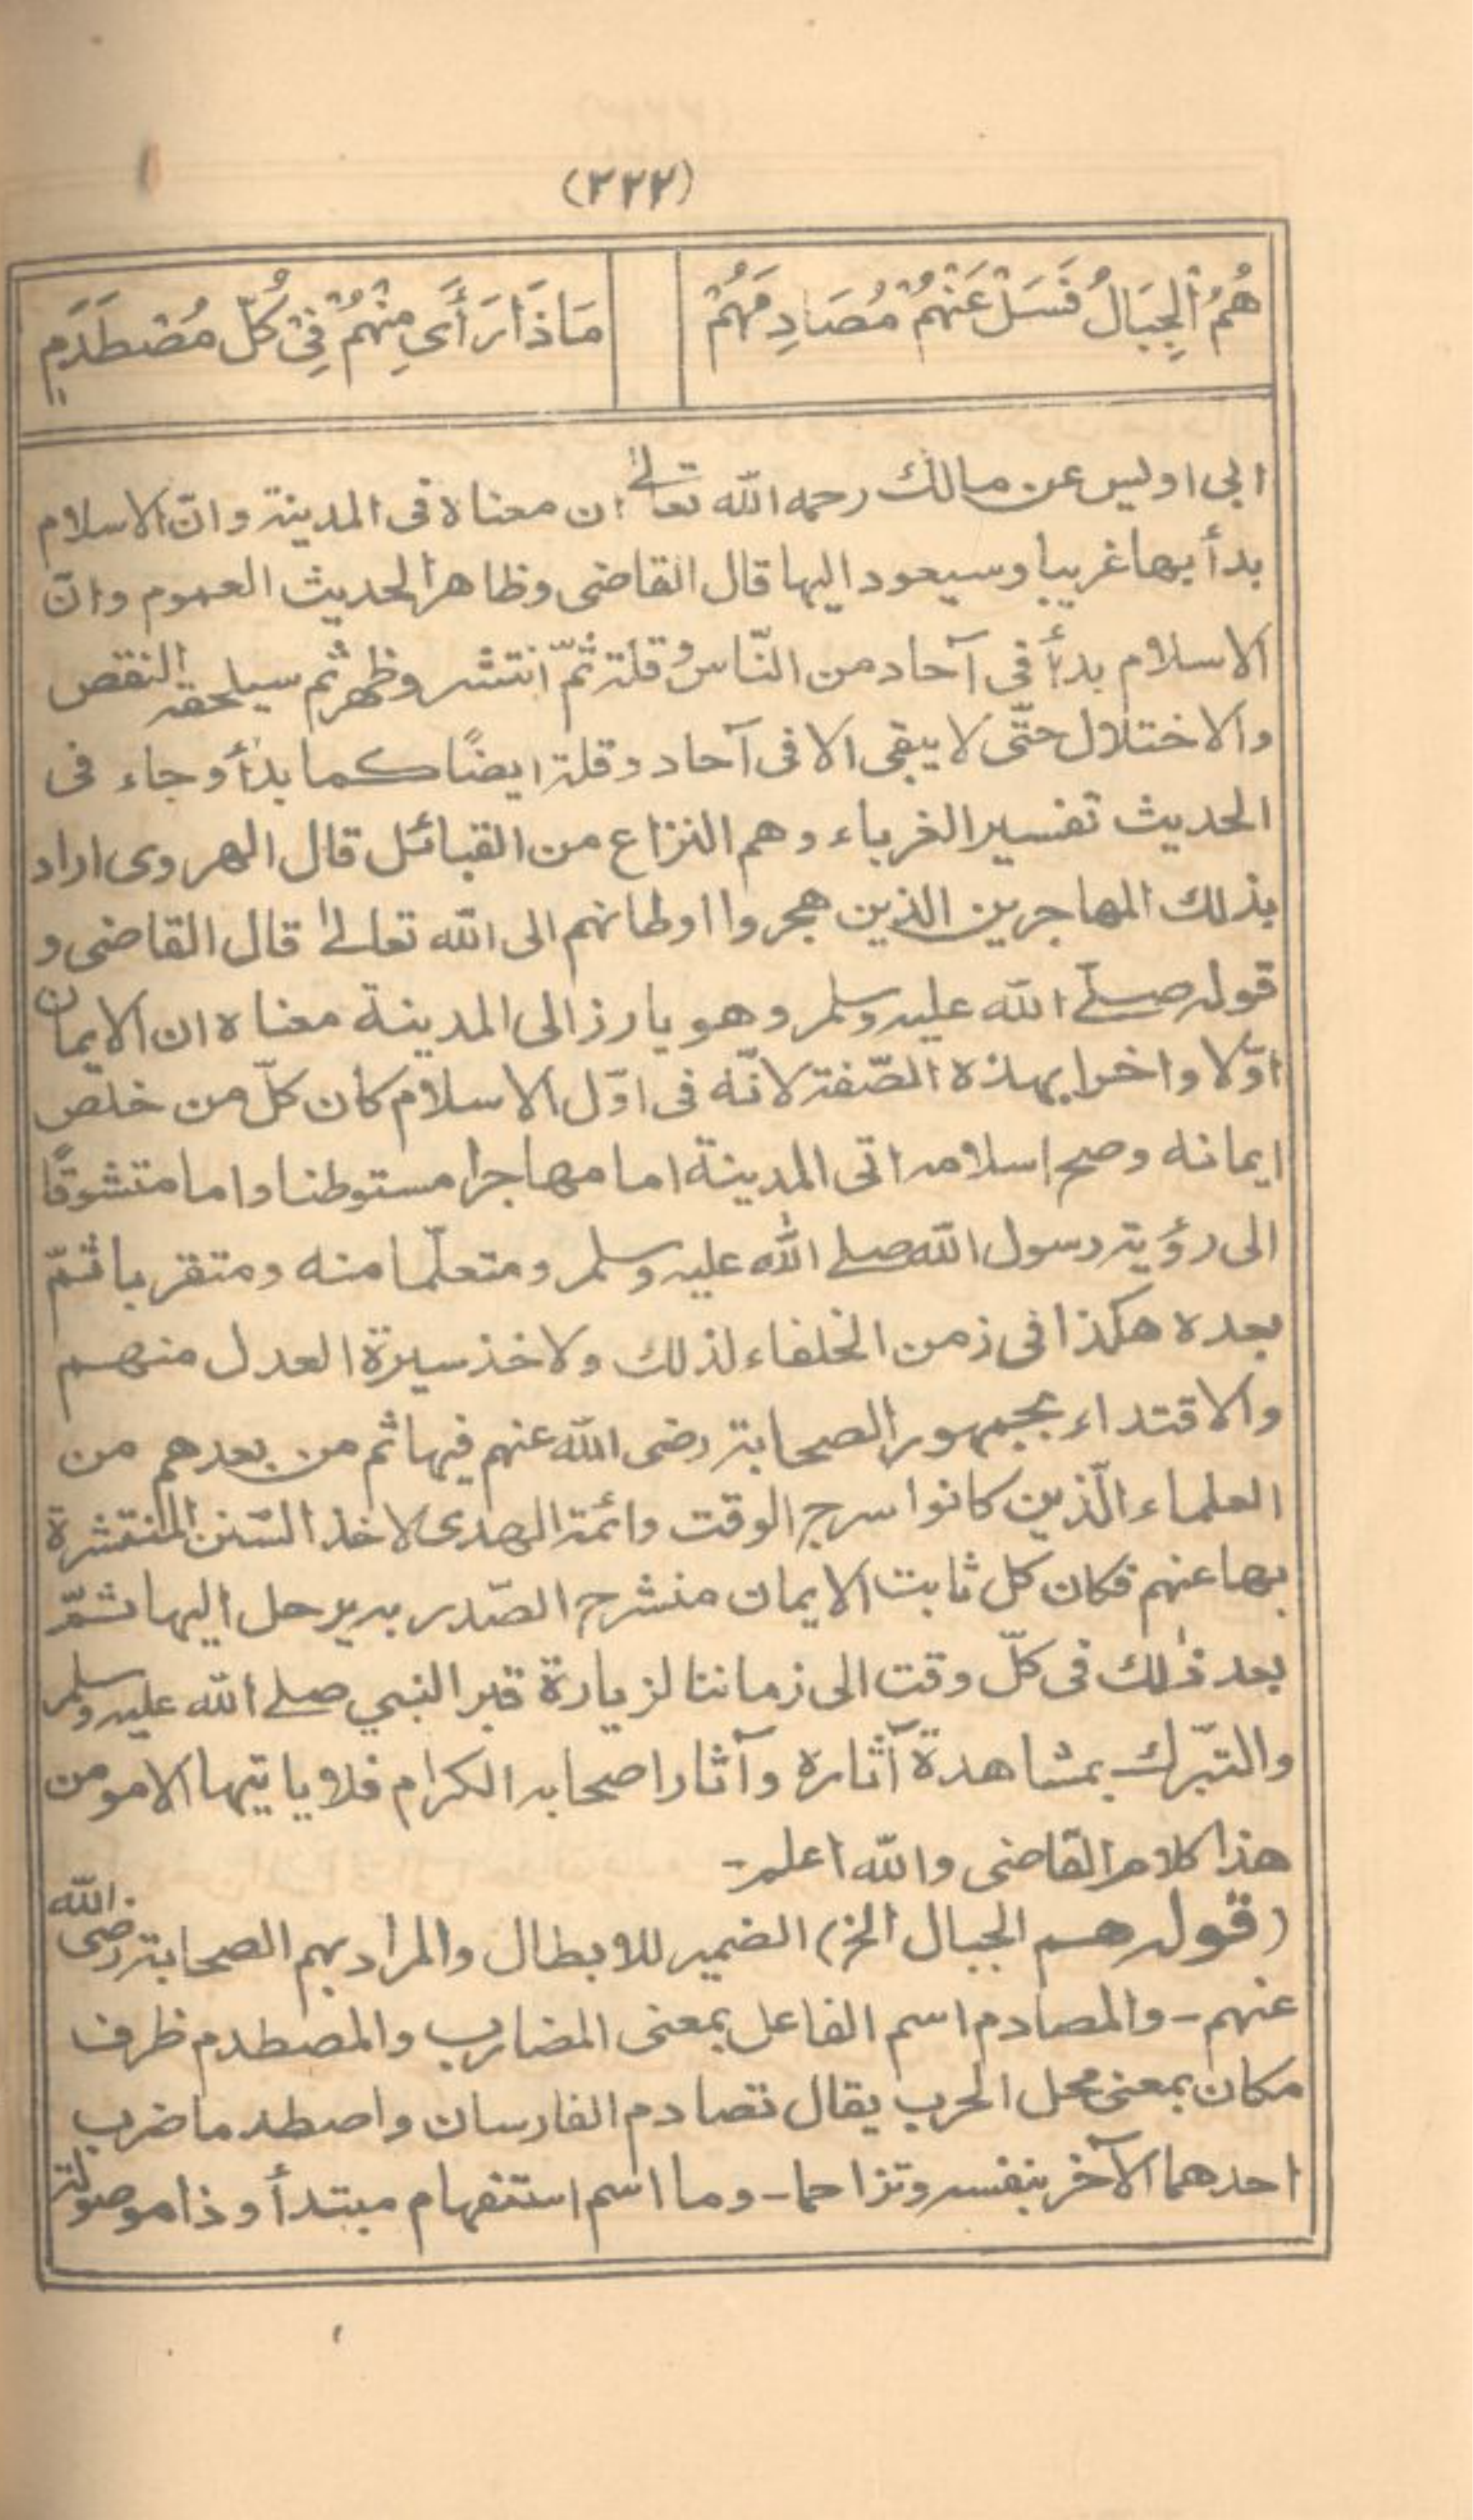 (٢٢٢)
هُمُ الْجِبَالُ فَسَلْ عَنْهُمْ مُصَادِمَهُمْ
مَاذَا رَأَى مِنْهُمْ فِيْ كُلِّ مُصْطَدَمٖ
ابى اويس عن مالك رحمه الله تعالىٰ ان معناه فى المدينة وانّ الاسلام
بدأ بها غريبا وسيعود اليها قال القاضى وظاهر الحديث العموم وانّ
الاسلام بدأ فى آحاد من النّاس وقلة ثمّ انتشر وظهر ثم سيلحقه النقص
والاختلال حتّى لا يبقى الا فى آحاد وقلة ايضًا كما بدأ وجاء فى
الحديث تفسير الغرباء وهم النزاع من القبائل قال الهروى اراد
بذلك المهاجرين الذين هجروا اوطانهم الى الله تعالىٰ قال القاضى و
قوله صلّے الله عليه وسلم وهو يارز الى المدينة معناه ان الايمان
اوّلا واخرا بهذه الصّفة لانّه فى اوّل الاسلام كان كلّ من خلص
ايمانه وصح اسلامه اتى المدينة اما مهاجرا مستوطنا واما متشوقًا
الى رؤية رسول الله صلے الله عليه وسلم ومتعلّما منه ومتقربا ثمّ
بعده هكذا فى زمن الخلفاء لذلك ولاخذ سيرة العدل منهم
والاقتداء بجمهور الصحابة رضى الله عنهم فيها ثم من بعدهم من
العلماء الّذين كانوا سرج الوقت وائمة الهدى لاخذ السّنن المنتشرة
بها عنهم فكان كل ثابت الايمان منشرح الصّدر به يرحل اليها ثمّ
بعد ذٰلك فى كلّ وقت الى زماننا لزيارة قبر النبي صلے الله عليه وسلم
والتبّرك بمشاهدة آثاره وآثار اصحابه الكرام فلا ياتيها الا مومن
هذا كلام القاضى والله اعلم۔
(قوله هم الجبال الخ) الضمير للابطال والمراد بهم الصحابة رضى الله
عنهم۔ والمصادم اسم الفاعل بمعنى المضارب والمصطدم ظرف
مكان بمعنى محل الحرب يقال تصادم الفارسان واصطدما ضرب
احدهما الآخر بنفسه وتزاحما۔ وما اسم استفهام مبتدأ وذا موصولة